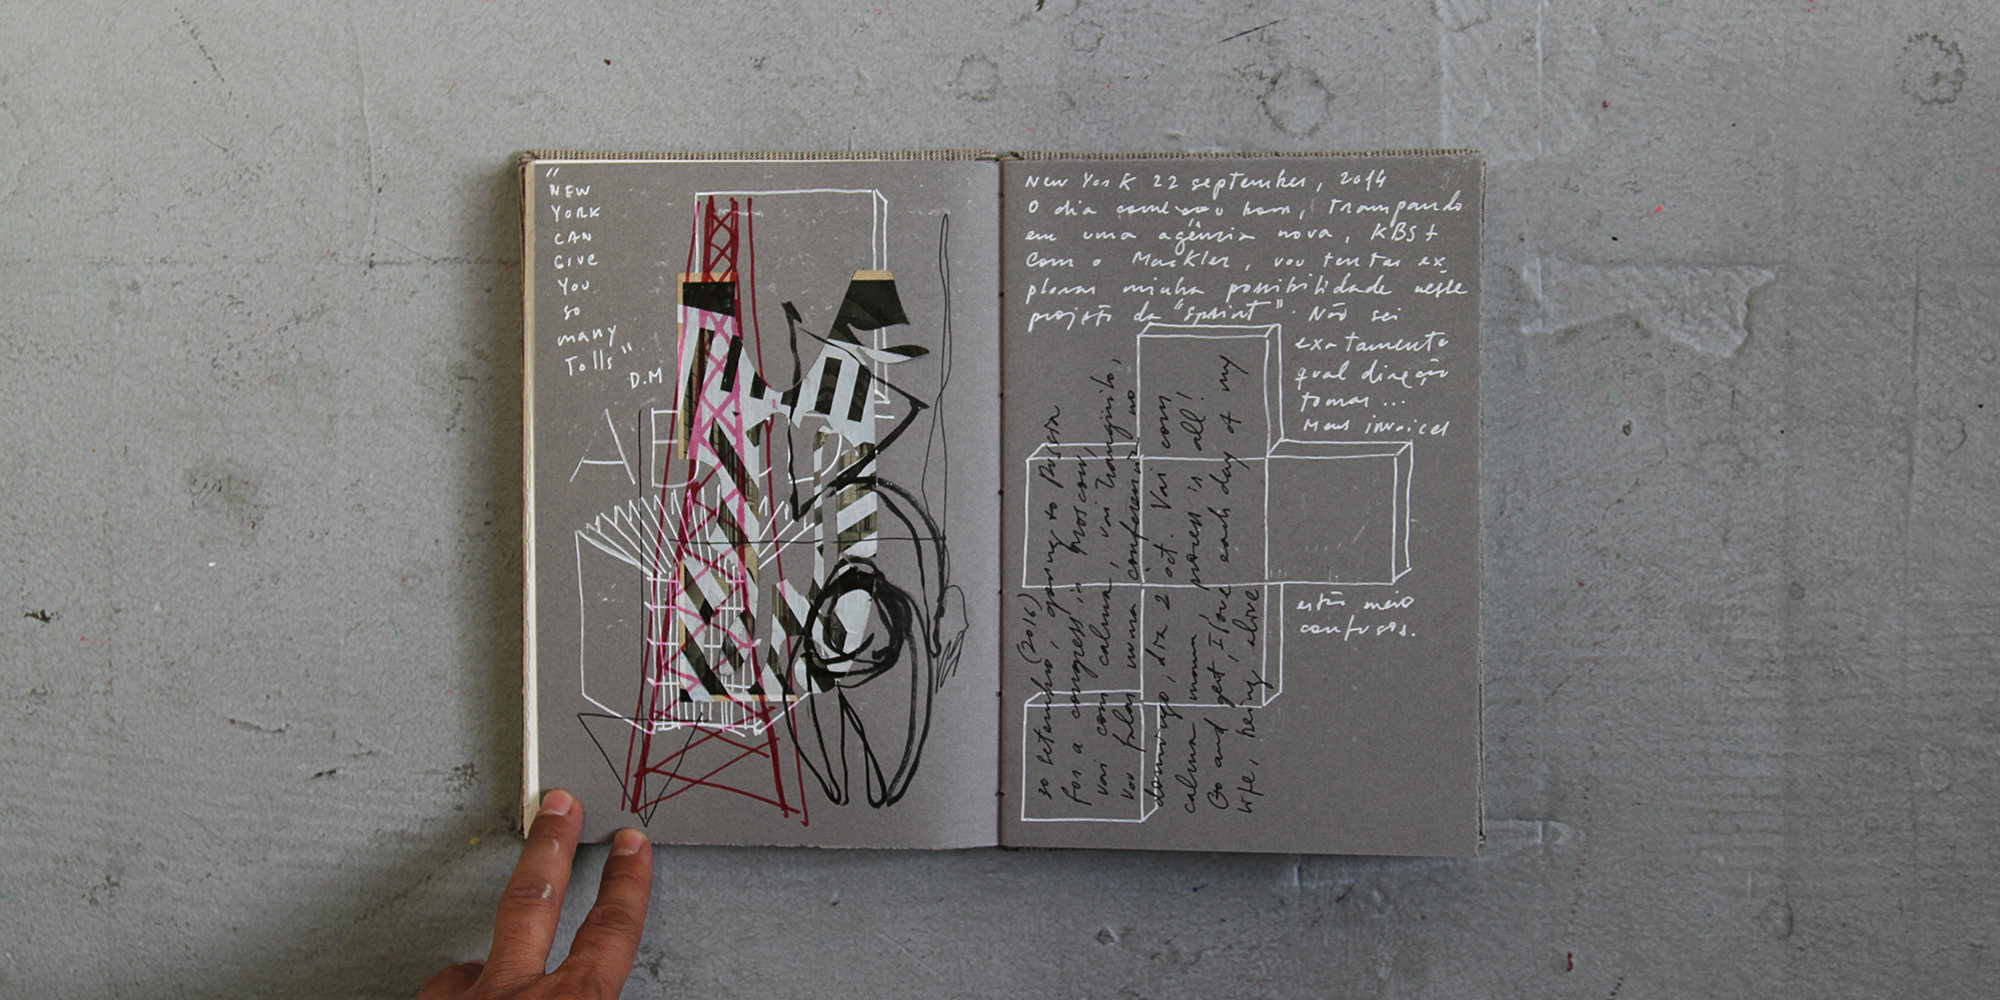 "
NEW
YORK
CAN
GIVE
YOU
SO
many
Tolls"
D.M
New York 22 september, 2014
O dia começou bom, trampando
em uma agência nova, KBS+
com o Mackler, vou tentar ex
plorar minha possibilidade nesse
projeto da "sprint". Não sei
exatamente
qual direção
tomar...
Meus invoices
estão meio
confusos.
so setembro (2016)
for a congress in moscow, going to Russia
vai com calma, vai tranquilo,
vou falar numa conferência no
domingo, dia 2 oct. Vai com
calma mann, process is all!
Go and get, I love each day of my
life, being alive